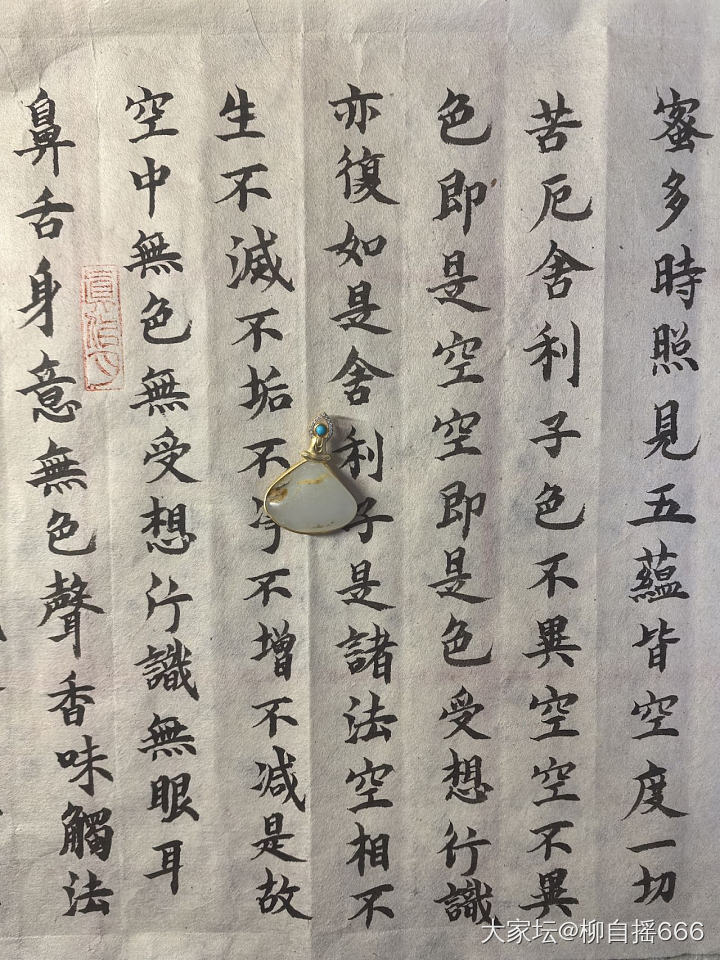 蜜多時照見五蘊皆空度一切
苦厄舍利子色不異空空不異
色即是空空即是色受想行識
亦復如是舍利子是諸法空相不
生不滅不垢不不增不减是故
空中無色無受想行識無眼耳
鼻舌身意無色聲香味觸法
大家坛@柳自摇666